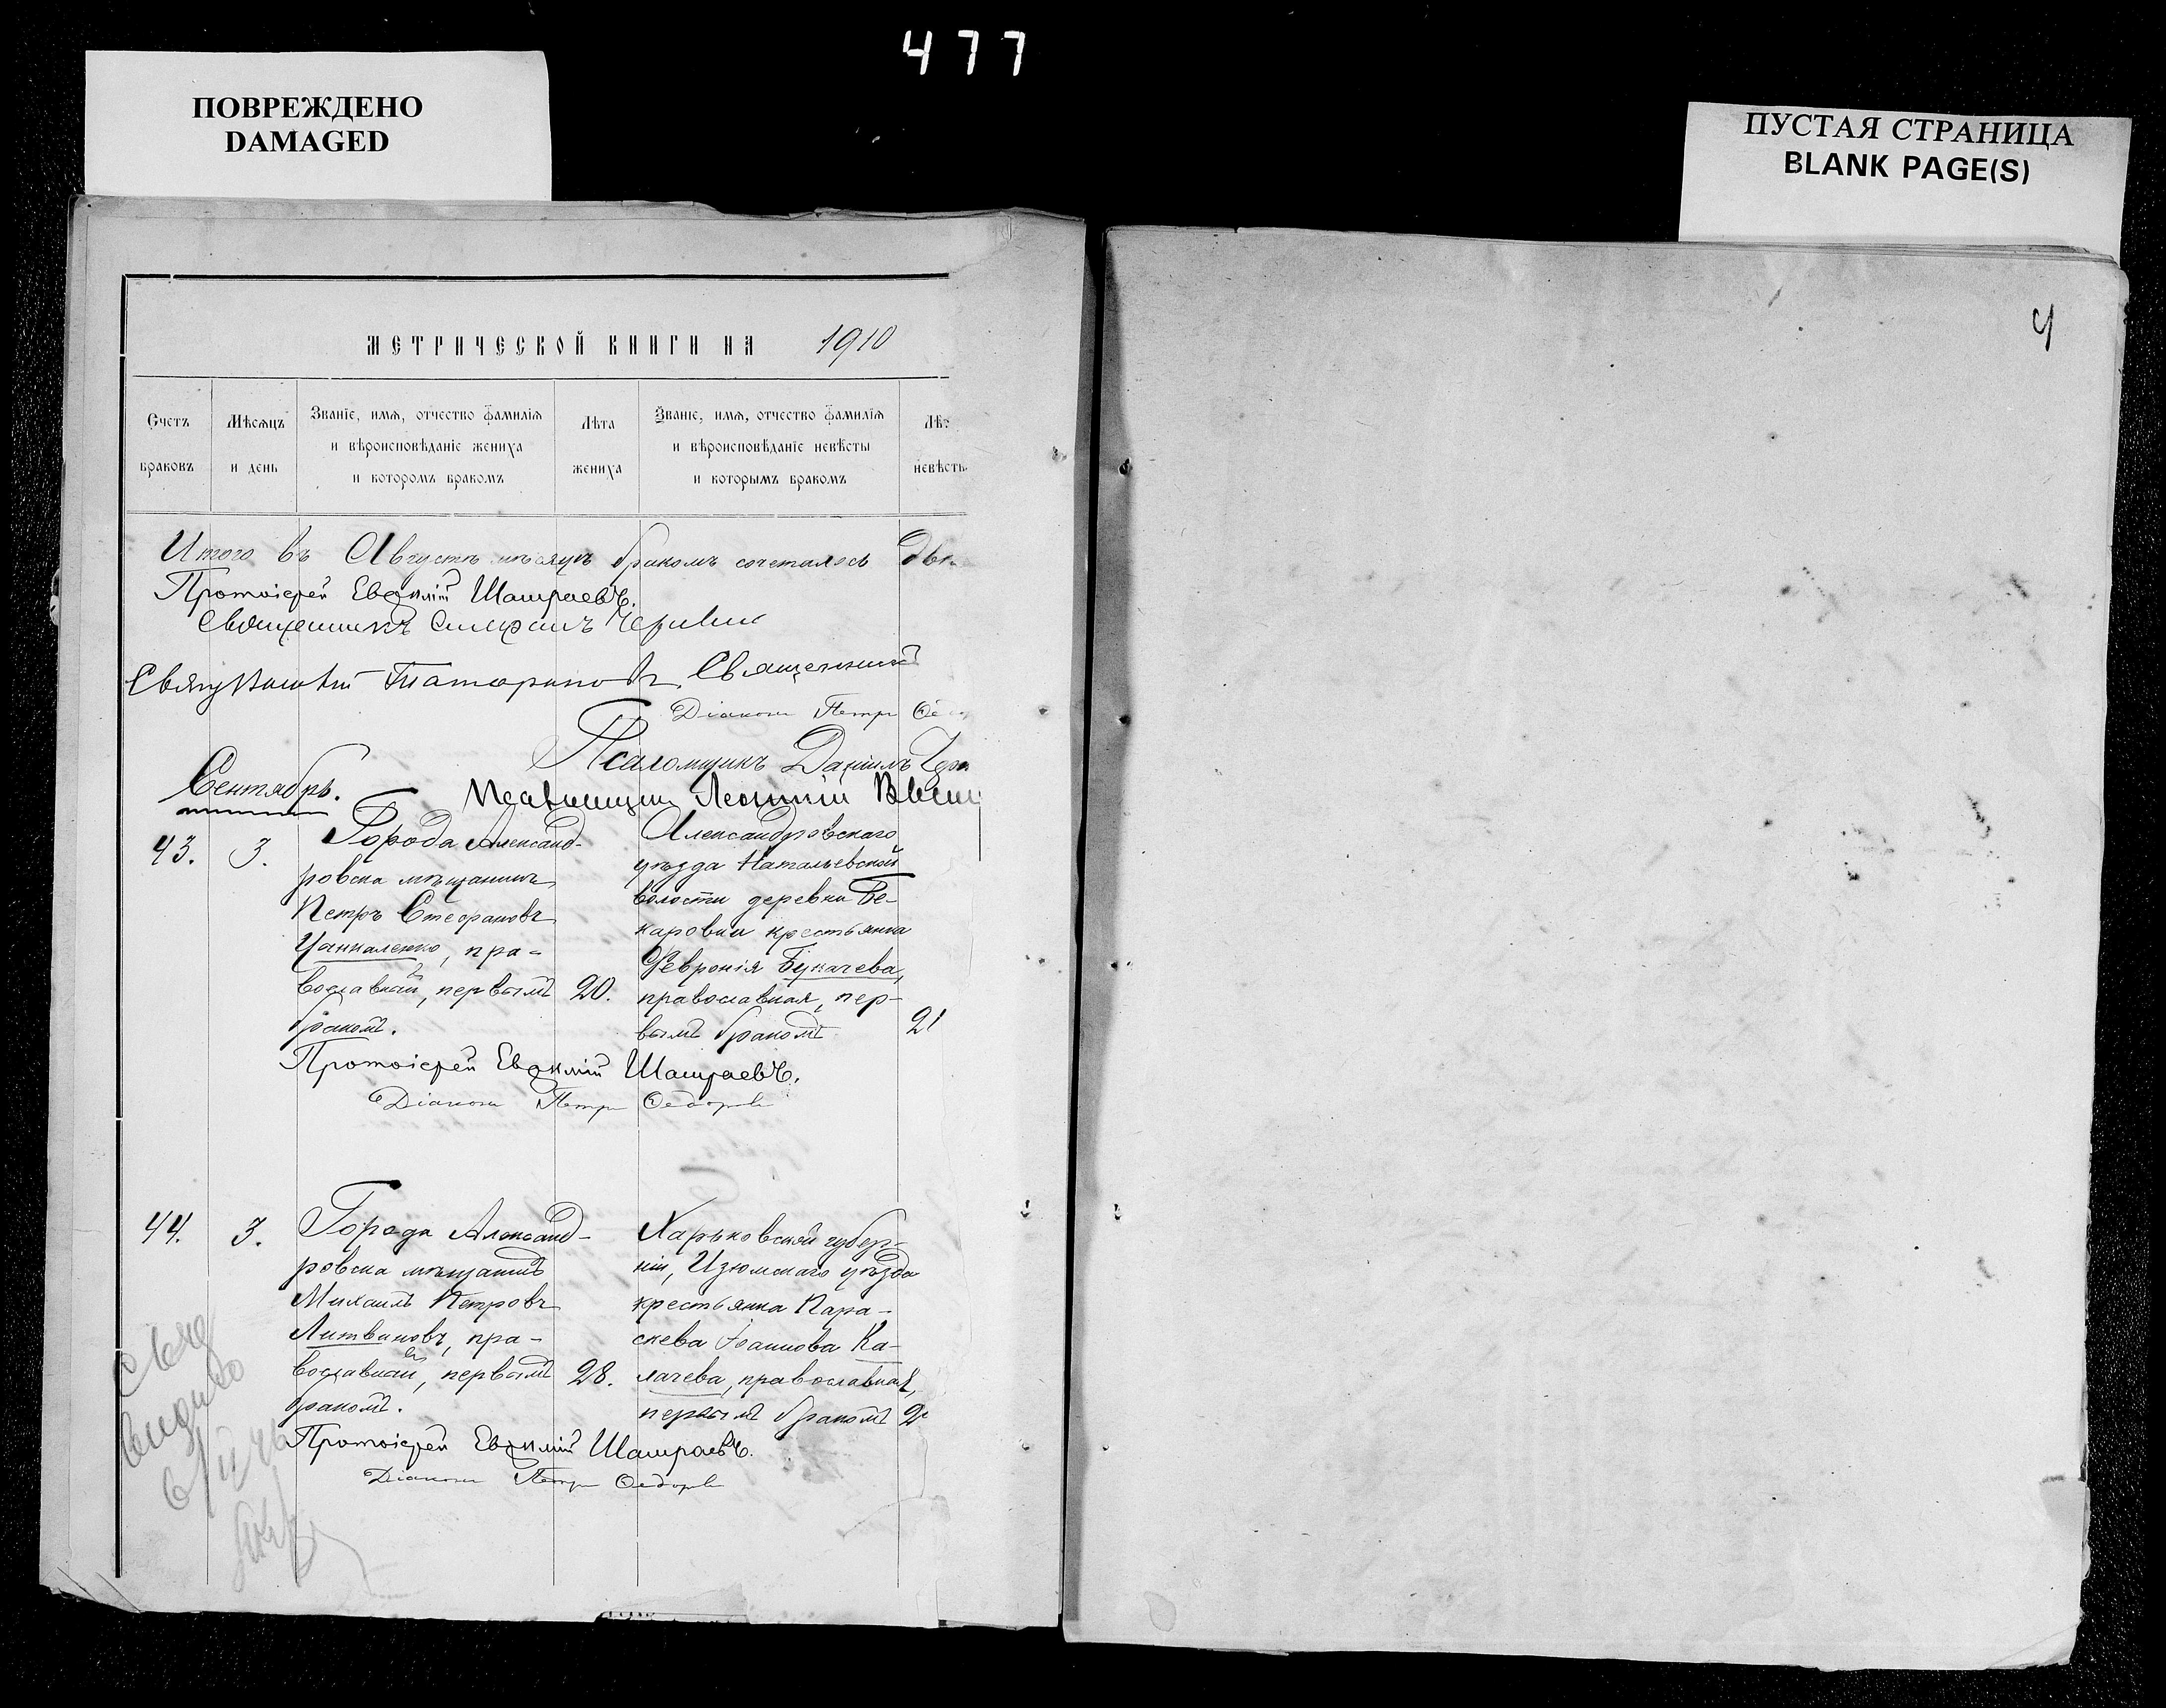 477
ПОВРЕЖДЕНО
DAMAGED
ПУСТАЯ СТРАНИЦА
BLANK PAGE(S)
МЕТРИЧЕСКОЙ КНИГИ НА 1910
Счетъ браковъ
Мѣсяцъ и день
Званіе, имя, отчество фамилія
и вѣроисповѣданіе жениха
и которомъ бракомъ
Лѣта жениха
Званіе, имя, отчество фамилія
и вѣроисповѣданіе невѣсты
и которымъ бракомъ
Лѣт
невѣсты
Итого въ Августѣ мѣсяцѣ бракомъ сочеталось
Протоіерей Евфимій
Священникъ
Священникъ Татариновъ. Священникъ
Діаконъ Петръ
Псаломщикъ Даніилъ
Сентябрь.
Псаломщикъ Леонтій
43.
3.
Города Александ-
ровска мѣщанинъ
Петръ Стефановъ
Цапаленко, пра-
вославный, первымъ
бракомъ.
20.
Александровскаго
уѣзда Натальевской
волости деревни Бе-
каровки крестьянка
Феvронія Букачева,
православная, пер-
вымъ бракомъ
21
Протоіерей Евфимій
Діаконъ Петръ Ѳедоровъ
44.
3.
Города Александ-
ровска мѣщанинъ
Михаилъ Петровъ
Литвиновъ, пра-
вославный, первымъ
бракомъ.
28.
Харьковской губер-
ніи, Изюмскаго уѣзда
крестьянка Пара-
скева Іоаннова Ка-
лачева, православная,
первымъ бракомъ
Протоіерей Евфимій
Діаконъ Петръ Ѳедоровъ